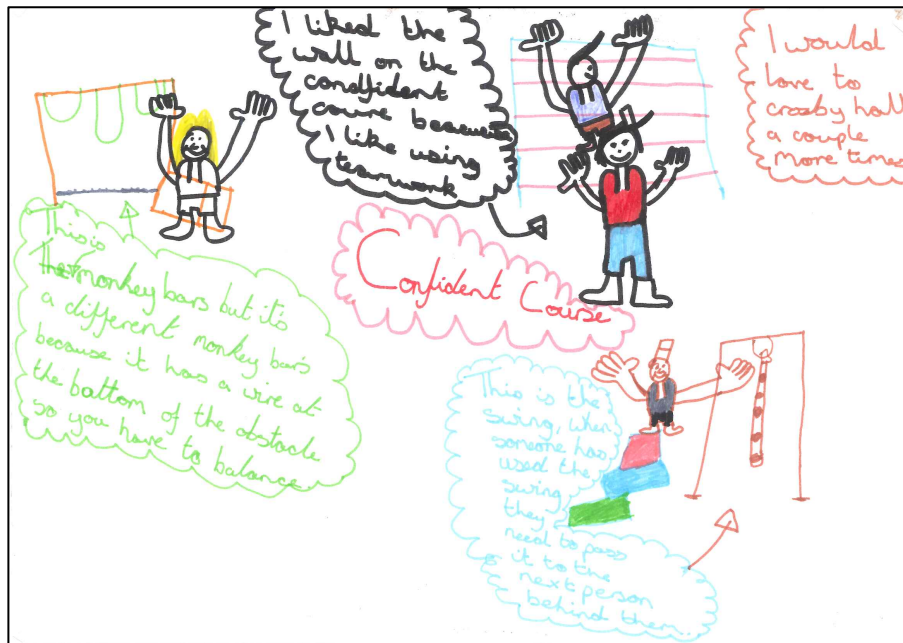 I liked the
wall on the
condfident
coure because
I like using
teamwork
I would
love to
crosby hall
a couple
more times
This is
monkey bars but it's
a different monkey bars
because it has a wire at
the bottom of the obstacle
so you have to balance.
Confident Course
This is the
swing, when
someone has
used the
swing
they
need to pass
it to the
next person
behind them.